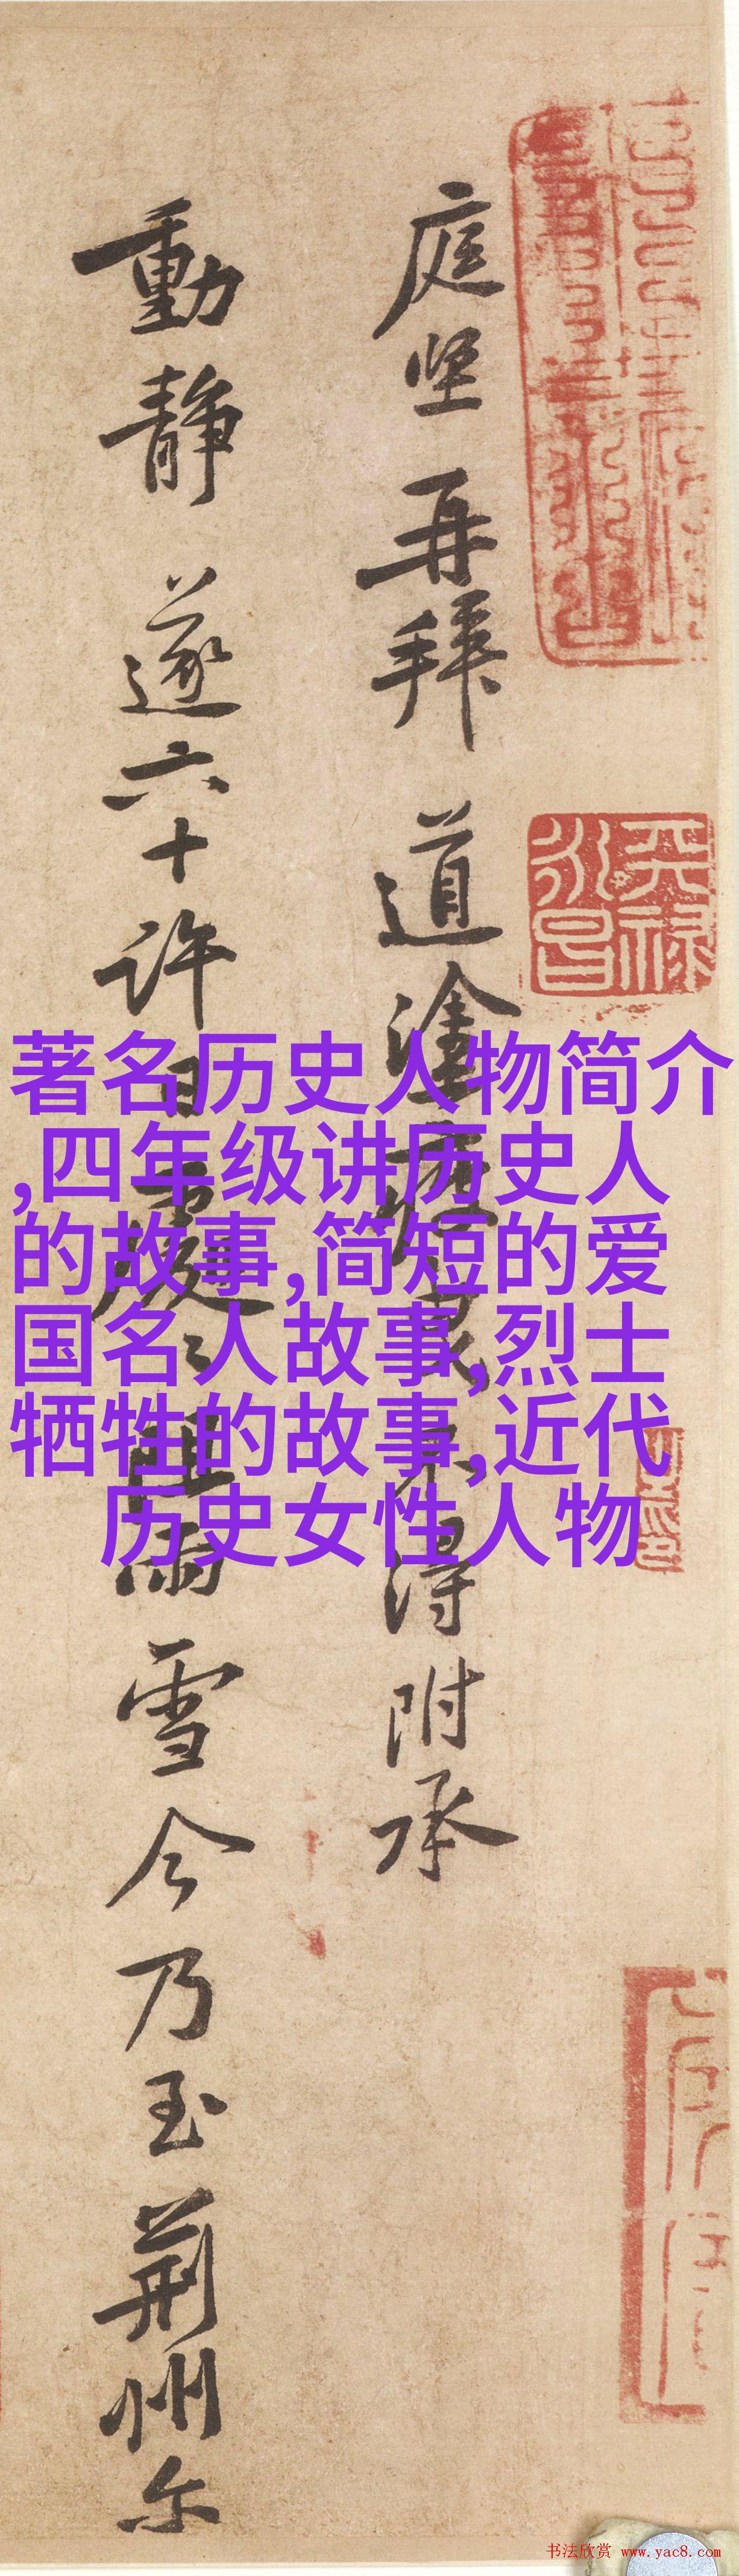 庭坚再拜道塗疲曳不得附承
動静遂六十許日處處阻雨雪今乃至荆州尔
天禄
永昌
著名历史人物简介
,四年级讲历史人
的故事,简短的爱
国名人故事,烈士
牺牲的故事,近代
历史女性人物
书法欣赏 www.yac8.com